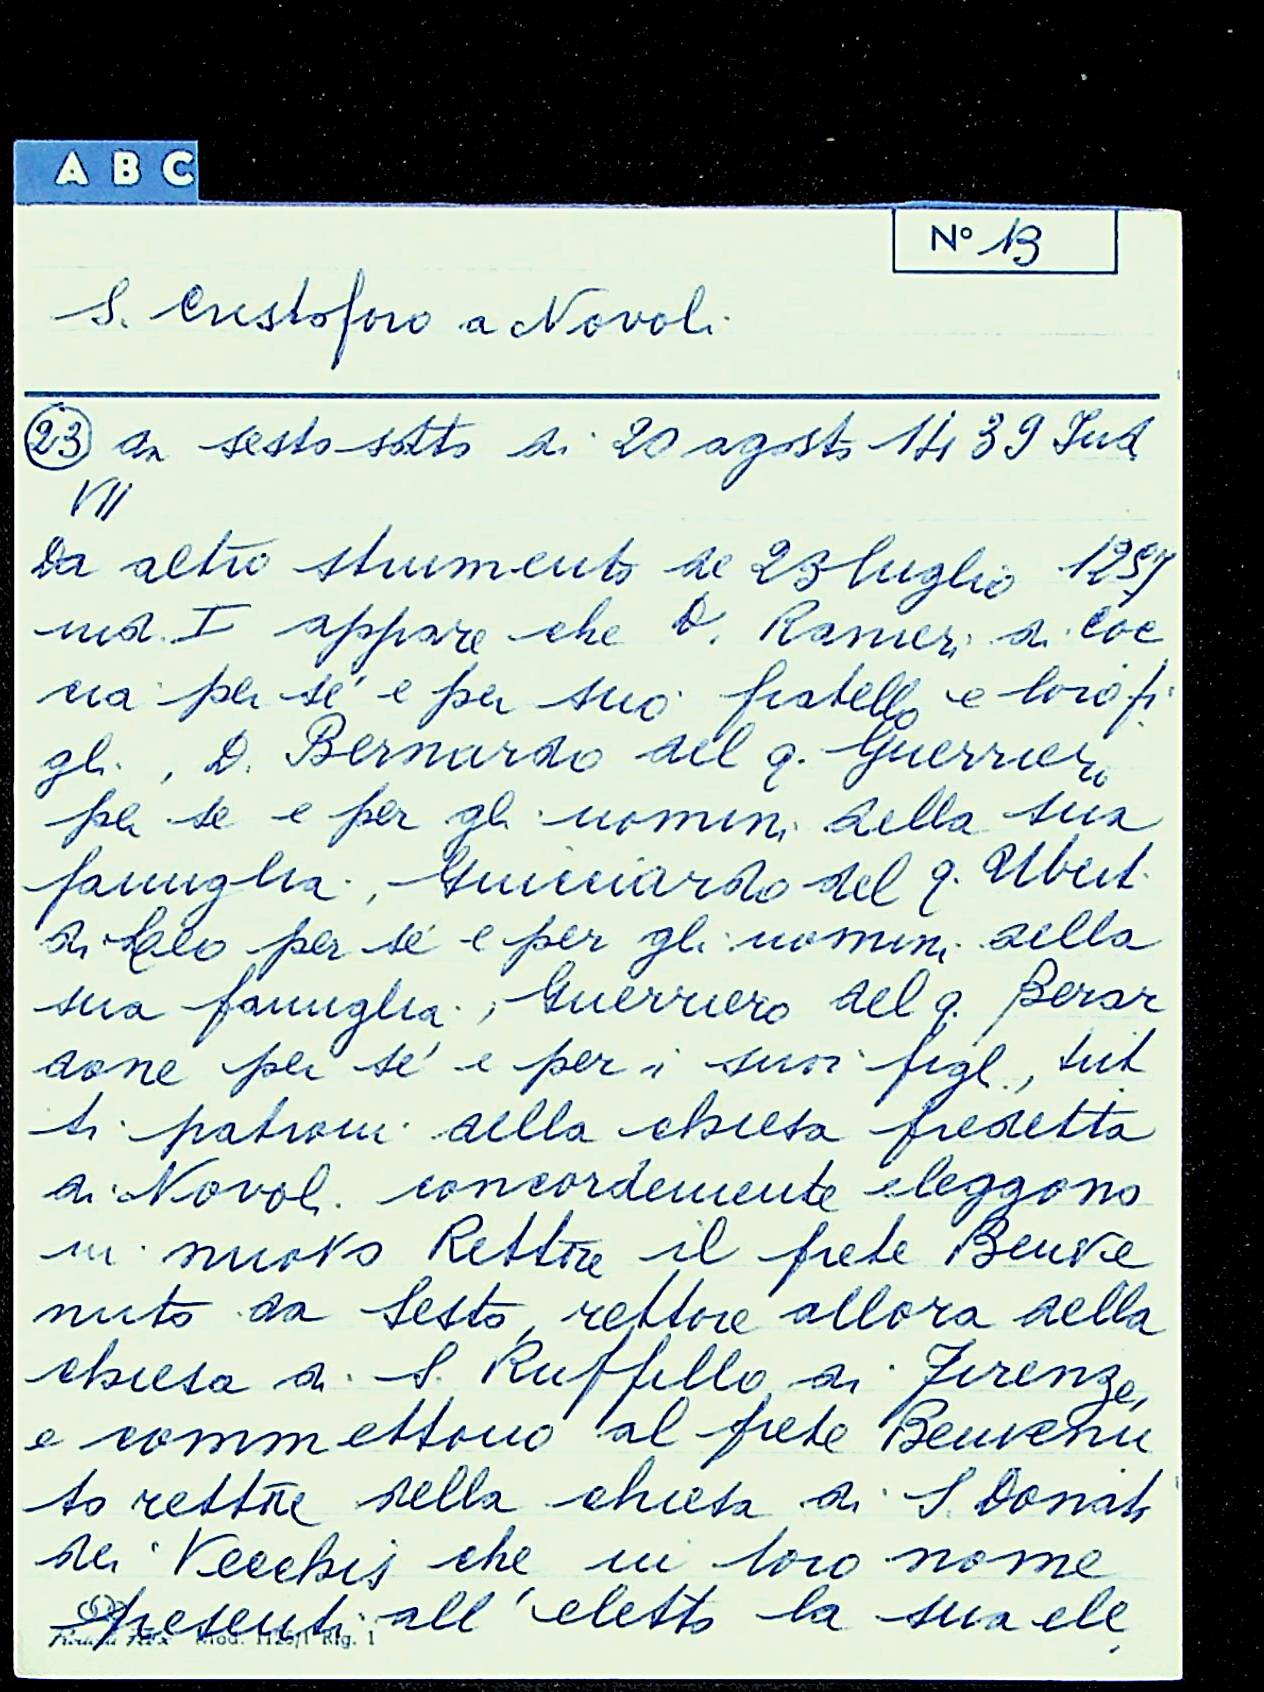 A B C
Nº 13
S. Cristoforo a Novoli
23 da sesto sotto di 20 agosto 1439 Ind
VII
Da altro strumento de 23 luglio 1257
ind. I appare che D. Ranieri di Coc
cia per sé e per suo fratello e loro fi
gli, D. Bernardo del q. Guerriero
per se e per gli uomini della sua
famiglia, Guicciardo del q. Ubert
di per sé e per gli uomini della
sua famiglia, Guerriero del q. Berar
done per sé e per i suoi figl., tut
ti patroni della chiesa predetta
di Novoli concordemente eleggono
in nuovo Rettore il prete Benve
nuto da Sesto, rettore allora della
chiesa di S. Ruffillo di Firenze,
e commettono al prete Benvenu
to rettore della chiesa di S. Donato
dei Vecchis che in loro nome
presenti all'eletto la sua ele
Mod. 1126/1 Rig. 1